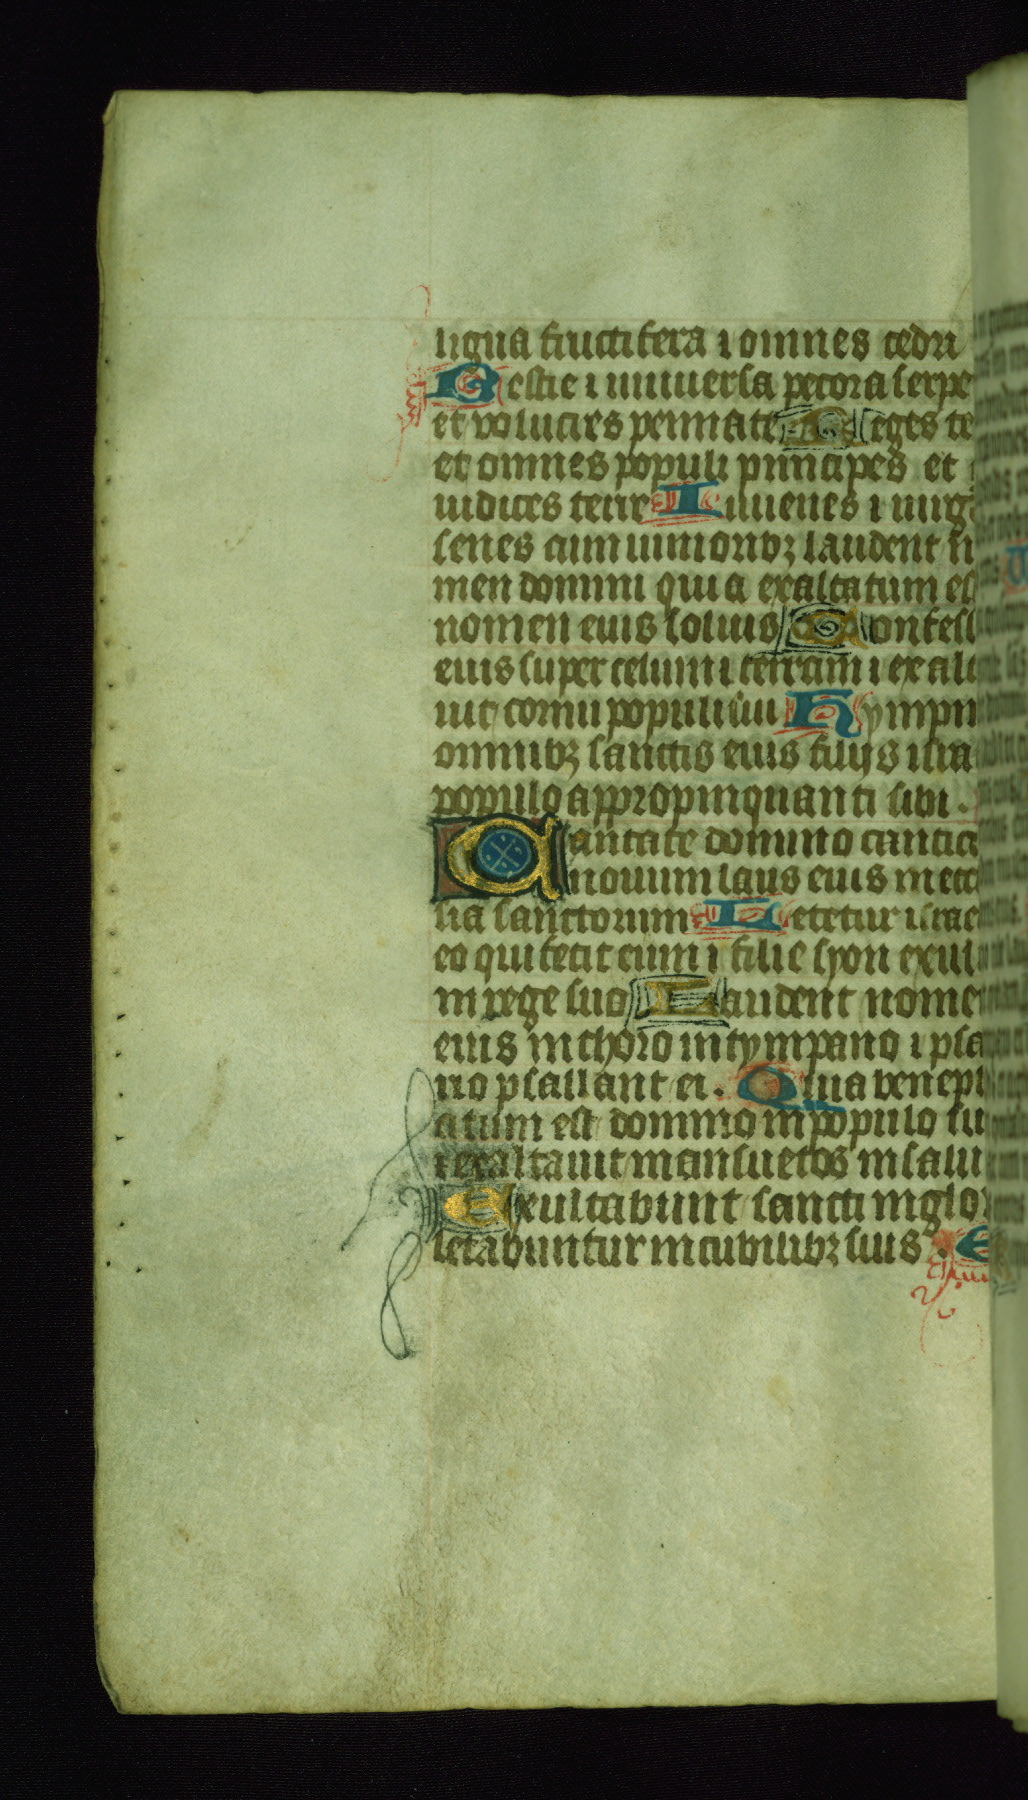 ligna fructifera ⁊ omnes cedri
Bestie ⁊ uniuersa pecora serpe
et volucres pennate Reges te
et omnes populi principes et
iudices terre Iuuenes ⁊ uirg
senes cum iunioribꝫ laudent n
men domini quia exaltatum es
nomen eius solius Confess
eius super celum ⁊ terram ⁊ exalt
uit cornu populi sui Hympn
omnibꝫ sanctis eius filijs isra
populo appropinquanti sibi .
Cantate domino cantic
nouum laus eius in ecc
sia sanctorum Letetur israe
eo qui fecit eum ⁊ filie syon exul
in rege suo Laudent nome
eius in choro in tympano ⁊ psa
rio psallant ei . Quia benepl
atum est domino in populo su
⁊ exaltauit mansuetos in salu
Exultabunt sancti in glor
letabuntur in cubilibꝫ suis . E